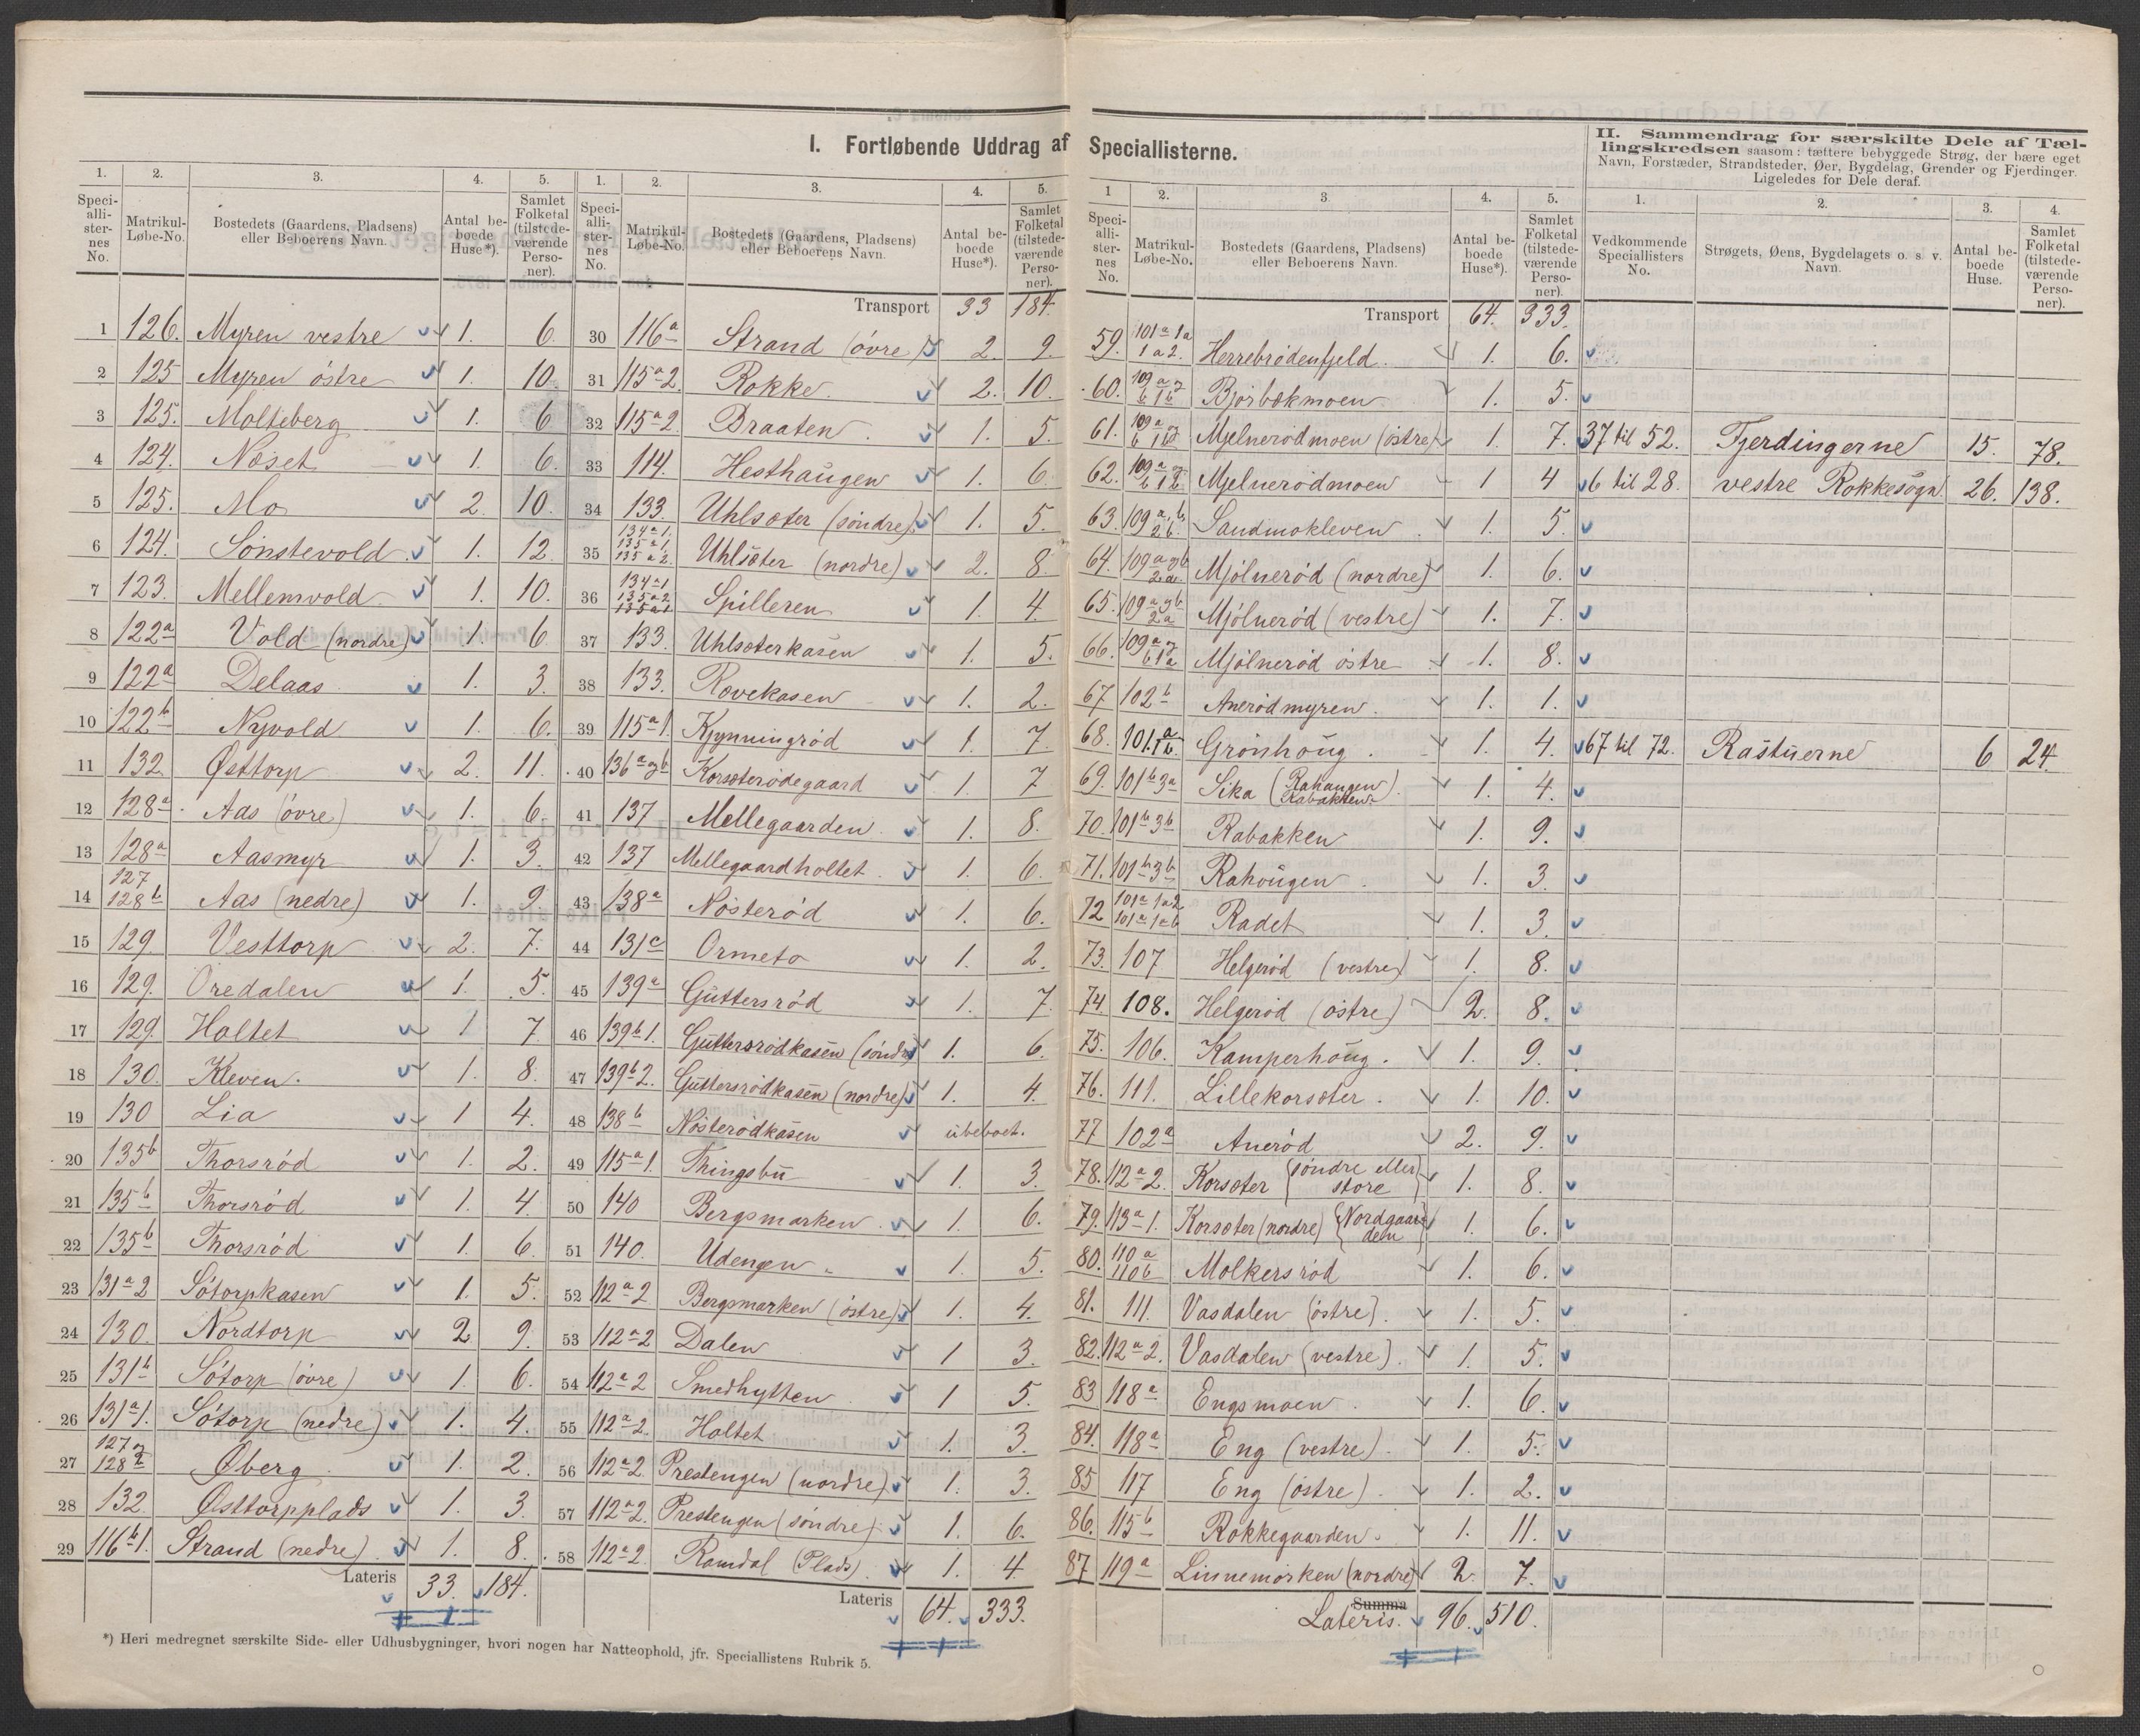 I. Fortløbende Uddrag af Speciallisterne.
1. 2. 3. 4. 5.
Speciallisternes No. Matrikul-Løbe-No. Bostedets (Gaardens, Pladsens) eller Beboerens Navn. Antal beboede Huse*). Samlet Folketal (tilstedeværende Personer).
1 126. Myren vestre 1. 6.
2 125 Myren östre 1. 10.
3 125. Molteberg 1. 6
4 124. Næset 1. 6.
5 125. Mo 2. 10.
6 124. Sönstevold 1. 12
7 123. Mellemvold 1. 10.
8 122a Vold (nordre) 1. 6
9 122a Delaas 1. 3.
10 122b Nyvold 1. 6.
11 132. Østtorp 2. 11.
12 128a Aas (övre) 1. 6.
13 128a Aasmyr 1. 3.
14 127 128b Aas (nedre) 1. 9.
15 129. Vesttorp 2. 7.
16 129. Oredalen 1. 5.
17 129. Holtet 1 7
18 130. Kleven. 1. 8.
19 130 Lia 1 4.
20 135b Thorsröd 1. 2.
21 135b Thorsröd 1. 4.
22 135b Thorsröd 1. 6.
23 131a2 Sötorpkasen 1. 5.
24 130. Nordtorp 2 9.
25 131b Sötorp (övre) 1. 6.
26 131a1. Sötorp (nedre) 1. 4.
27 127 og 128 Øberg 1. 2.
28 132. Østtorpplads 1. 3.
29 116b1. Strand (nedre) 1. 8.
Lateris 33. 184.
*) Heri medregnet særskilte Side- eller Udhusbygninger, hvori nogen har Natteophold, jfr. Speciallistens Rubrik 5.
1. 2. 3. 4. 5.
Speciallisternes No. Matrikul-Løbe-No. Bostedets (Gaardens, Pladsens) eller Beboerens Navn. Antal beboede Huse*). Samlet Folketal (tilstedeværende Personer).
Transport 33 184.
30 116a Strand (övre) 2. 9.
31 115a2. Rokke. 2. 10.
32 115a2 Braaten 1. 5.
33 114. Hesthaugen 1. 6.
34 133. Uhlsæter (söndre) 1. 5.
35 134a1. 135a1. 135a2. Uhlsæter (nordre) 2. 8.
36 134a1. 135a2 135a1 Spilleren 1. 4.
37 133. Uhlsæterkasen 1. 5.
38 133. Rævekasen 1. 2.
39 115a1. Kjynningröd 1. 7.
40 136a og b Korsæterödegaard 1. 7
41 137 Mellegaarden 1. 8.
42 137 Mellegaardholtet 1. 6.
43 138a Nösteröd 1. 6.
44 131c Ormeto 1. 2.
45 139a Guttersröd 1. 7.
46 139b1. Guttersrödkasen (söndr) 1. 6.
47 139b2. Guttersrödkasen (nordre) 1. 4.
48 138b Nösterödkasen ubeboet.
49 115a1. Thingsbu 1. 3.
50 140 Bergsmarken 1. 6.
51 140. Udengen 1. 5.
52 112a2 Bergsmarken (östre) 1. 4.
53 112a2 Dalen 1 3.
54 112a2 Smedhytten 1 5.
55 112a2. Holtet 1. 3.
56 112a2. Prestengen (nordre) 1. 3.
57 112a2. Prestengen (söndre) 1. 6.
58 112a2. Ramdal (Plads) 1. 4
Lateris 64. 333.
1 2. 3 4. 5.
Speciallisternes No. Matrikul-Løbe-No. Bostedets (Gaardens, Pladsens) eller Beboerens Navn. Antal beboede Huse*). Samlet Folketal (tilstedeværende Personer).
Transport 64. 333.
59. 101a1a 1a2. Herrebrödenfjeld. 1. 6.
60. 109a og b1b Bjorbækmoen 1. 5.
61. 109a og b1b Mjelnerödmoen (östre) 1. 7.
62. 109a og b1b Mjelnerödmoen 1 4
63. 109a,b, 2b. Sandmokleven 1. 5.
64. 109a og b 2a. Mjölneröd (nordre) 1. 6.
65. 109a og b 2a Mjölneröd (vestre) 1. 7.
66. 109a og b1a Mjölneröd östre 1. 8.
67 102b Anerödmyren. 1. 1.
68. 101. Grönhoug. 1. 4.
69. 101b3a Sika (Rahaugen Rabakken) 1. 4.
70. 101b3b Rabakken 1. 9.
71. 101b3b Rahougen 1. 3.
72 101a1a2. 101a1ab Radet 1. 3.
73. 107 Helgeröd (vestre) 1. 8.
74. 108. Helgeröd (östre) 2. 8.
75. 106. Kamperhoug. 1. 9.
76. 111. Lillekorsæter. 1. 10.
77 102a Aneröd 2. 9.
78. 112a2. Korsæter {söndre eller store} 1. 8.
79. 113a1. Korsæter (nordre) {Nordgaardeln} 1. 6.
80. 110a 110b Molkersröd 1. 6.
81. 111. Vasdalen (östre). 1. 5.
82. 112a2. Vasdalen (vestre). 1. 5.
83 118a Engsmoen 1. 6.
84. 118a Eng (vestre). 1. 5.
85 117 Eng (östre). 1. 2.
86. 115b Rokkegaarden. 1. 11.
87 119a Linnemörken (nordre) 2. 7.
Summa
Lateris. 96. 510.
II. Sammendrag for særskilte Dele af Tællingskredsen saasom: tættere bebyggede Strøg, der bære eget Navn, Forstæder, Strandsteder, Øer, Bygdelag, Grender og Fjerdinger. Ligeledes for Dele deraf.
1. 2. 3. 4.
Vedkommende Speciallisters No. Strøgets, Øens, Bygdelagets o. s. v. Navn. Antal beboede Huse. Samlet Folketal (tilstedeværende Personer).
37 til 52. Fjerdingerne 15. 78.
6 til 28. vestre Rokkesogn 26. 138.
67 til 72. Rastuerne 6 24.